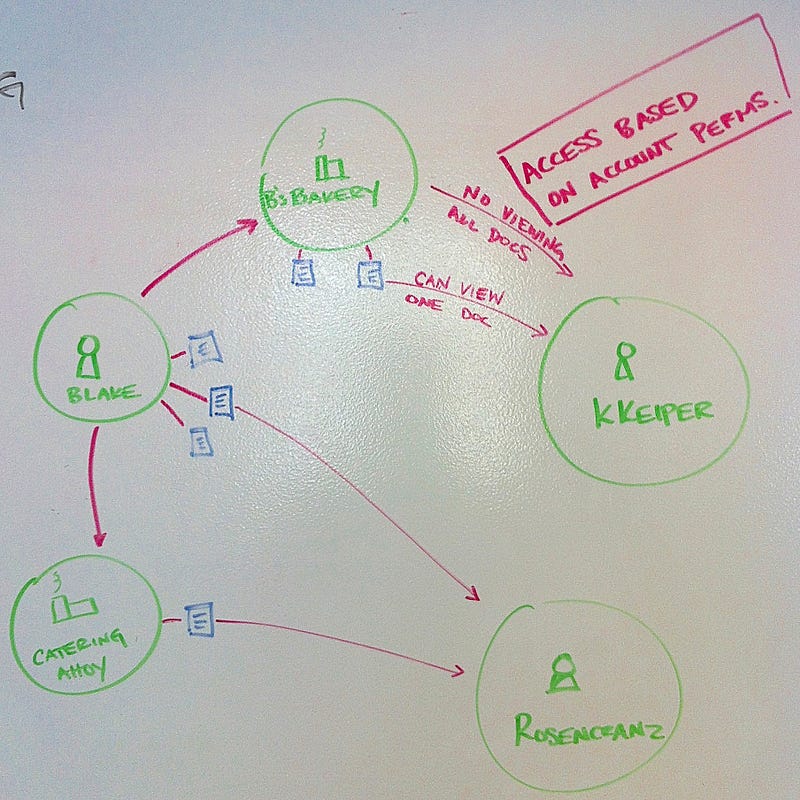 G
ACCESS BASED
ON ACCOUNT PERMS.
B'S BAKERY
NO VIEWING
ALL DOCS
CAN VIEW
ONE DOC
BLAKE
KKEIPER
CATERING
AHOY
ROSENCRANZ